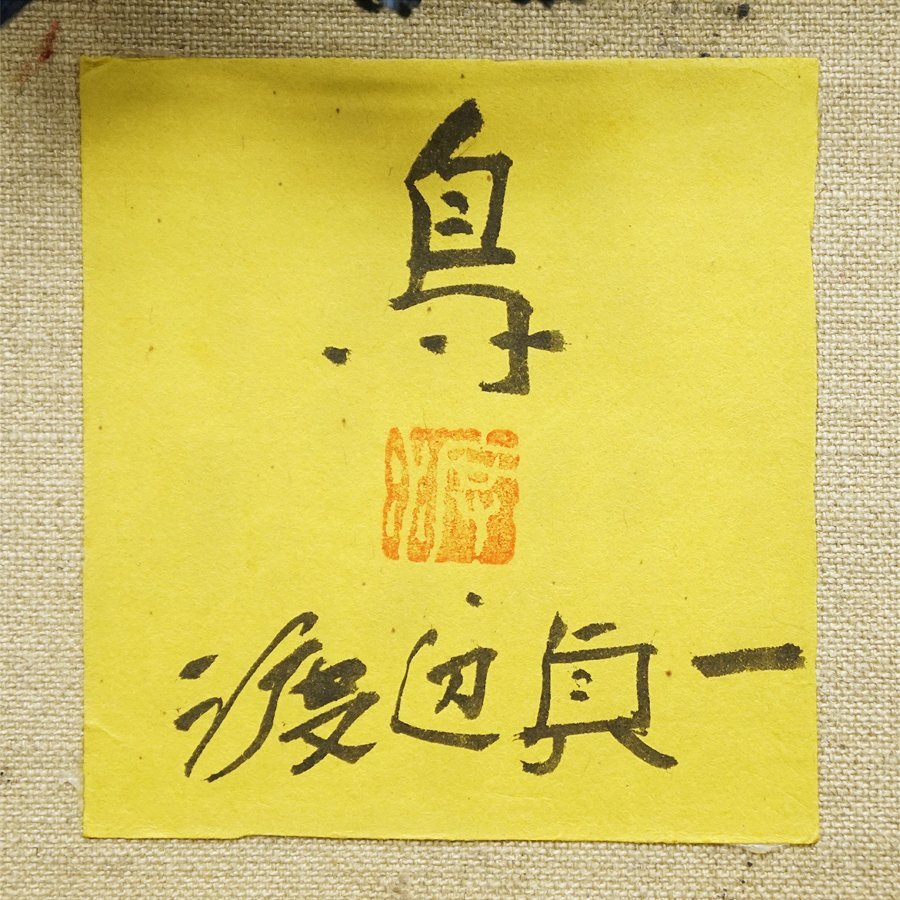 鳥
渡辺貞一